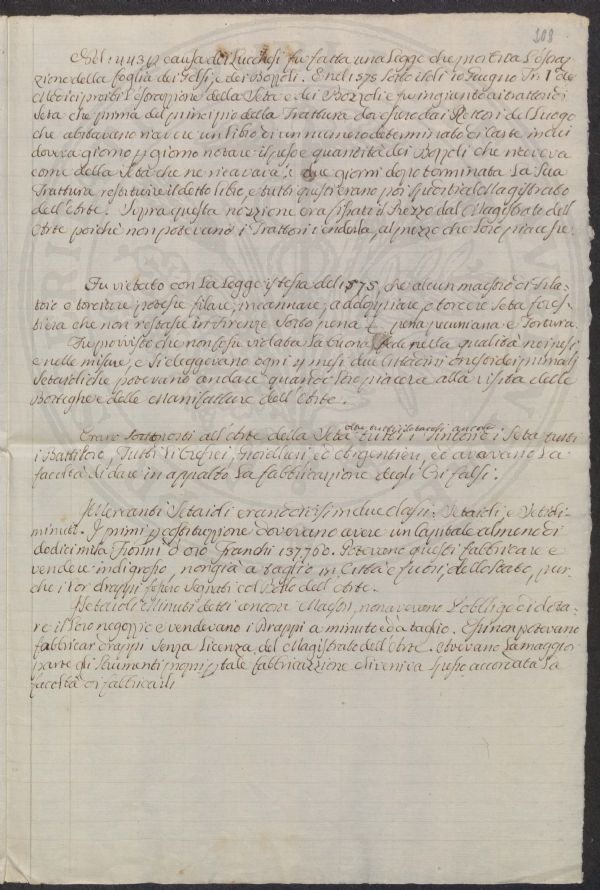 108
Nel 1443 p causa dei Lucchesi fu fatta una Legge che proibiva l'estra-
zione della foglia dei Gelsi, e dei Bozzoli. E nel 1575 sotto il dì 10 Giugno Fr. I de
Medici proibì l'estrazione della Seta e dei Bozzoli e fu ingiunto ai trattori di
Seta che prima del principio della Trattura da esso o dai Rettori del Luogo
che abitavano riavere un libro di un numero determinato di Carte in cui
dovea giorno p giorno notare il peso e quantità dei Bozzoli che riceveva
come della Seta che ne ricavava, e due giorni dopo terminata La Sua
Trattura restituire il detto libro, e tutti questi erano poi al Magistrato
dell'Arte. Sopra questa nozione era fissato il Prezzo dal Magistrato dell'
Arte poichè non potevano i Trattori venderla, al prezzo che Loro piacesse.
Fu vietato con La Legge istessa del 1575, che alcun maestro di Fila-
toio e torcitore potesse filare, incannare, addoppiare, o torcere Seta fores-
tiera che non restasse in Firenze sotto pena pena pecuniaria e Tortura.
Fu provvisto che non fosse violata La buona fede nella qualità nei pesi
e nelle misure, e si eleggevano ogni 4 mesi due Cittadini onesti dei primi
Setaioli che potevano andare quando Loro piaceva alla visita delle
Botteghe e delle Manifatture dell'Arte.
oltre tutti i Setaioli ancora
Erano sottoposti all'Arte della Seta tutti i Tintori i Seta tutti
i Battiloro, Tutti Li Orefici, Gioiellieri ed Argentieri, ed avevano La
facoltà di dare in appalto La fabbricazione degli Ori falsi.
I Mercanti Setaioli erano divisi in due classi: Setaioli, e Setaioli
minuti. I primi p costituzione dovevano avere un Capitale almeno di
dodici mila Fiorini d'oro Franchi 137760. Potevano questi fabbricare e
vendere indigrosso, non già a taglio in Città e fuori, dello Stato, pur-
chè i lor drappi fossero segnati col Bollo dell'Arte.
Setaioli Minuti detti ancora Magri, non avevano L'obbligo di dota-
re il Loro negozio e vendevano i Drappi a minuto ed a taglio. Essi non potevano
fabbricar drappi Senza Licenza del Magistrato dell'Arte. Avevano La maggior
parte gli Strumenti proprj p tale fabbricazione e li veniva spesso accordata La
facoltà di fabbricarli